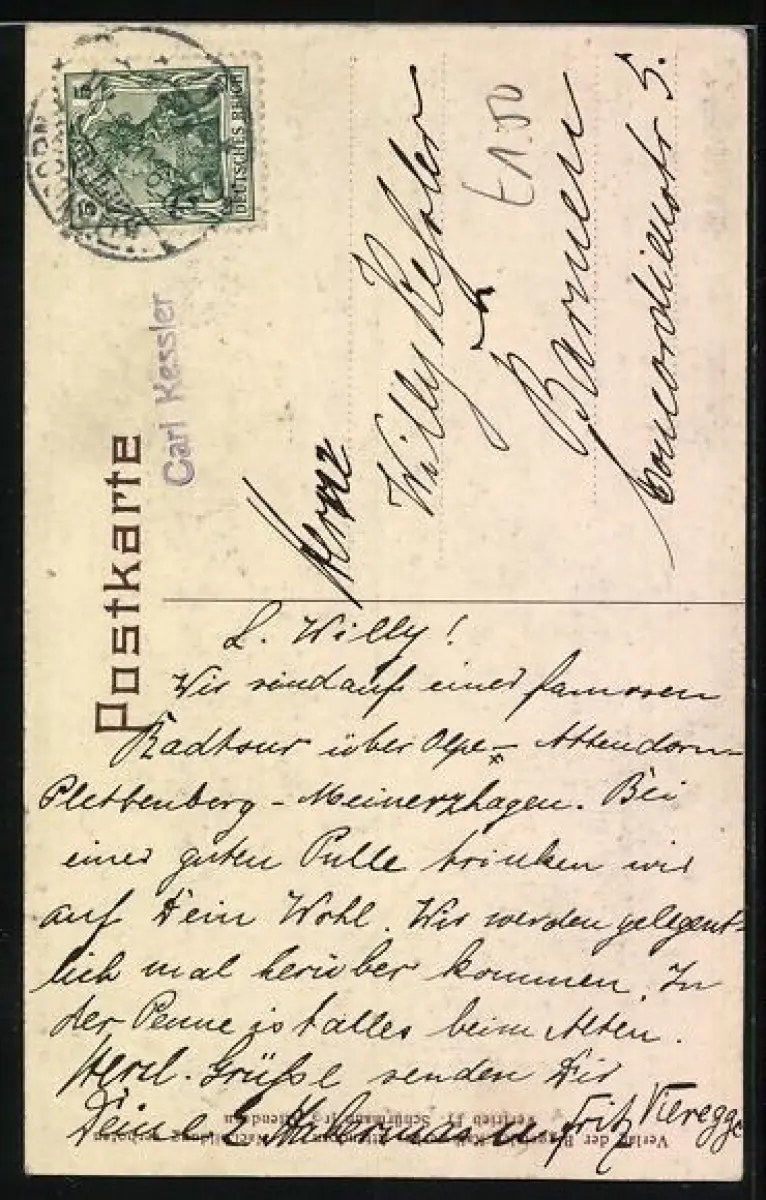 DEUTSCHES REICH
5 5
Postkarte
Carl Kessler
Herrn
Willy Kessler
in
Barmen
Concordienstr 5.
£1.50
L. Willy!
Wir sind auf einer famosen
Radtour über Olpe - Attendorn -
Plettenberg - Meinerzhagen. Bei
einer guten Pulle trinken wir
auf Dein Wohl. Wir werden gelegent-
lich mal herüber kommen. In
der Penne ist alles beim Alten.
Herzl. Grüsse senden Dir
Deine u Fritz Vieregge
Verlag der
Vertrieb Fr. Schürmann jr. Attendorn